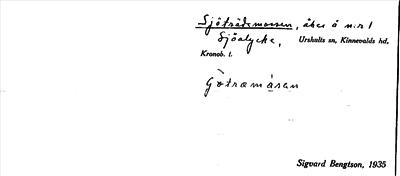 Sjöträdsmossen, åker å n:r 1
Sjöalycke, Urshults sn, Kinnevalds hd,
Kronob. l.
Götramåsan
Sigvard Bengtson, 1935